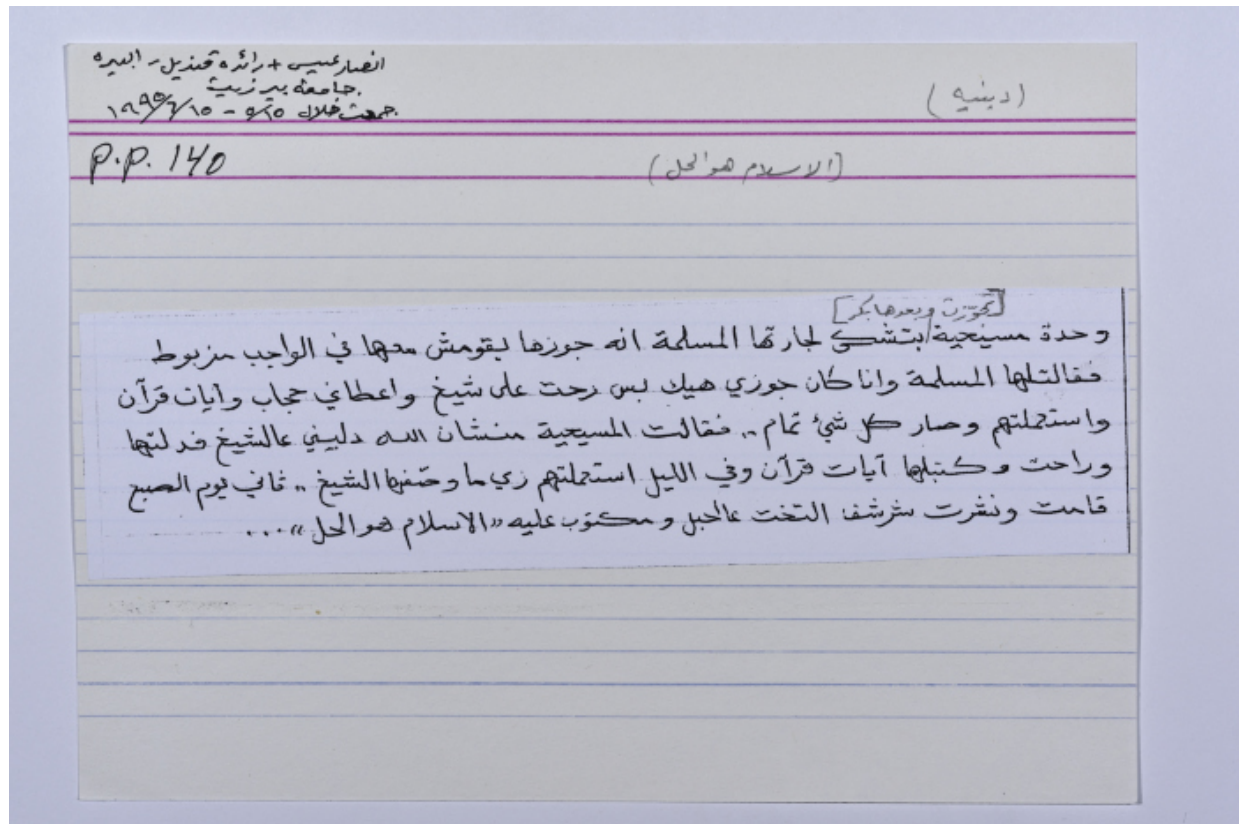 انصار عيسى + رائده قنديل - البيره
جامعه بير زيت
جمعت خلال ٥/١٥ - ٦/١٥/١٩٩٥
(دينيه)
p.p. 140
(الاسلام هو الحل)
[تجوزت وبعدها بكر]
وحدة مسيحية بتشكي لجارتها المسلمة انه جوزها بقومش معها في الواجب مزبوط
فقالتلها المسلمة وانا كان جوزي هيك بس رحت على شيخ واعطاني حجاب وآيات قرآن
واستعملتهم وصار كل شيء تمام .. فقالت المسيحية منشان الله دليني عالشيخ فدلتها
وراحت وكتبلها آيات قرآن وفي الليل استعملتهم زي ما وصفها الشيخ .. ثاني يوم الصبح
قامت ونشرت شرشف التخت عالحبل ومكتوب عليه "الاسلام هو الحل" ...